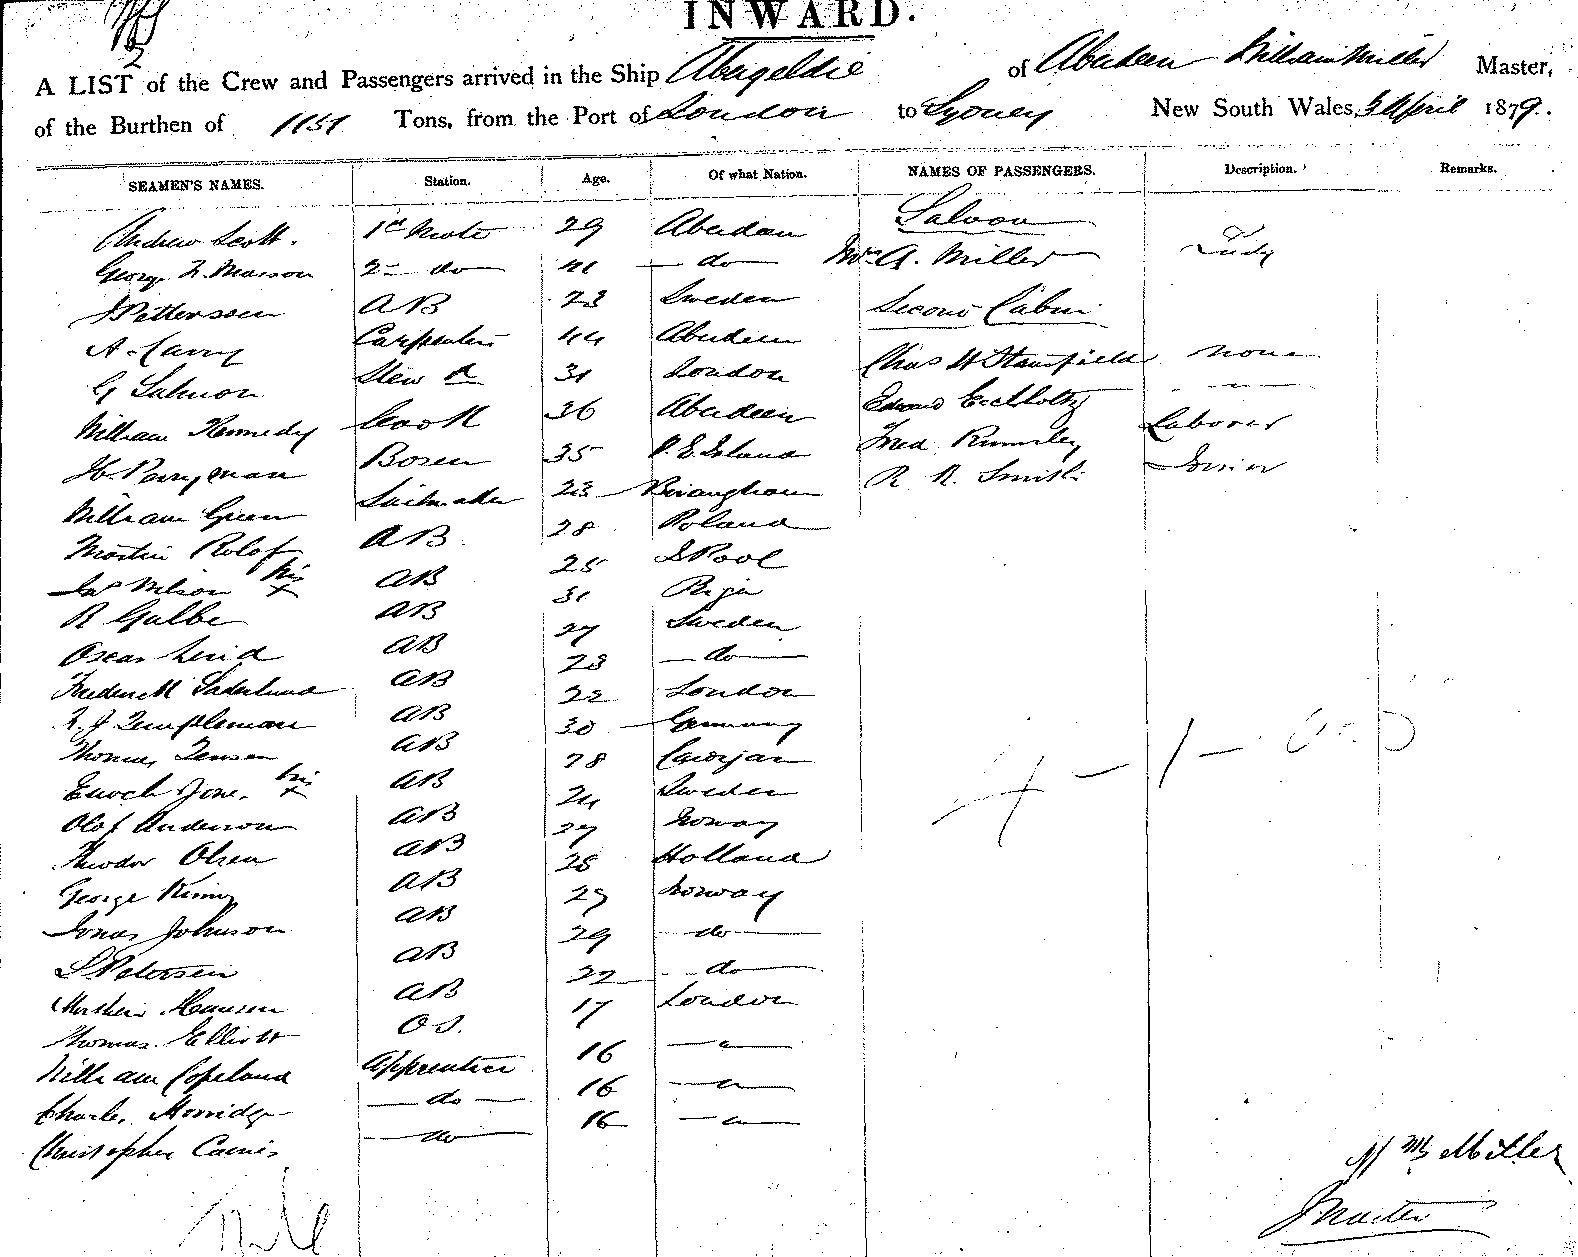 INWARD.
A LIST of the Crew and Passengers arrived in the Ship Abergeldie of Aberdeen William Miller Master,
of the Burthen of 1151 Tons, from the Port of London to Sydney New South Wales, 3 April 1879.
SEAMEN'S NAMES. Station. Age. Of what Nation. NAMES OF PASSENGERS. Description. Remarks.
Saloon
Andrew Scott. 1st Mate 29 Aberdeen
George Masson 2 do 41 do Mrs A. Miller Lady
J Petterssen AB 23 Sweden Second Cabin
A. Carpenter 44 Aberdeen
G Salmon Stewd 31 London Chas H Stansfield None
William Kennedy Cook 36 Aberdeen Edward
H. Perryman Bosen 35 P. E. Island Fred Laborer
William Green Sailmaker 23 Birmingham R. R. Smith Joiner
Martin Rolof AB 28 Poland
Jas Wilson his x AB 25 L Pool
R Galbe AB 31 Riga
Oscar Lind AB 27 Sweden
Frederick Saderlund AB 23 do
Templeman AB 22 London
Thomas Jensen AB 30 Germany
Enoch Jones his x AB 28 Cardigan
Olof Anderson AB 24 Sweden
Theodor Olsen AB 27 Norway
George AB 28 Holland
Jonas Johnson AB 29 Norway
Petersen AB 29 do
Hansen AB 22 do
Thomas Elliott O.S. 17 London
William Copeland Apprentice 16 "
Charles do 16 "
Christopher do 16 "
Wm Miller
Master